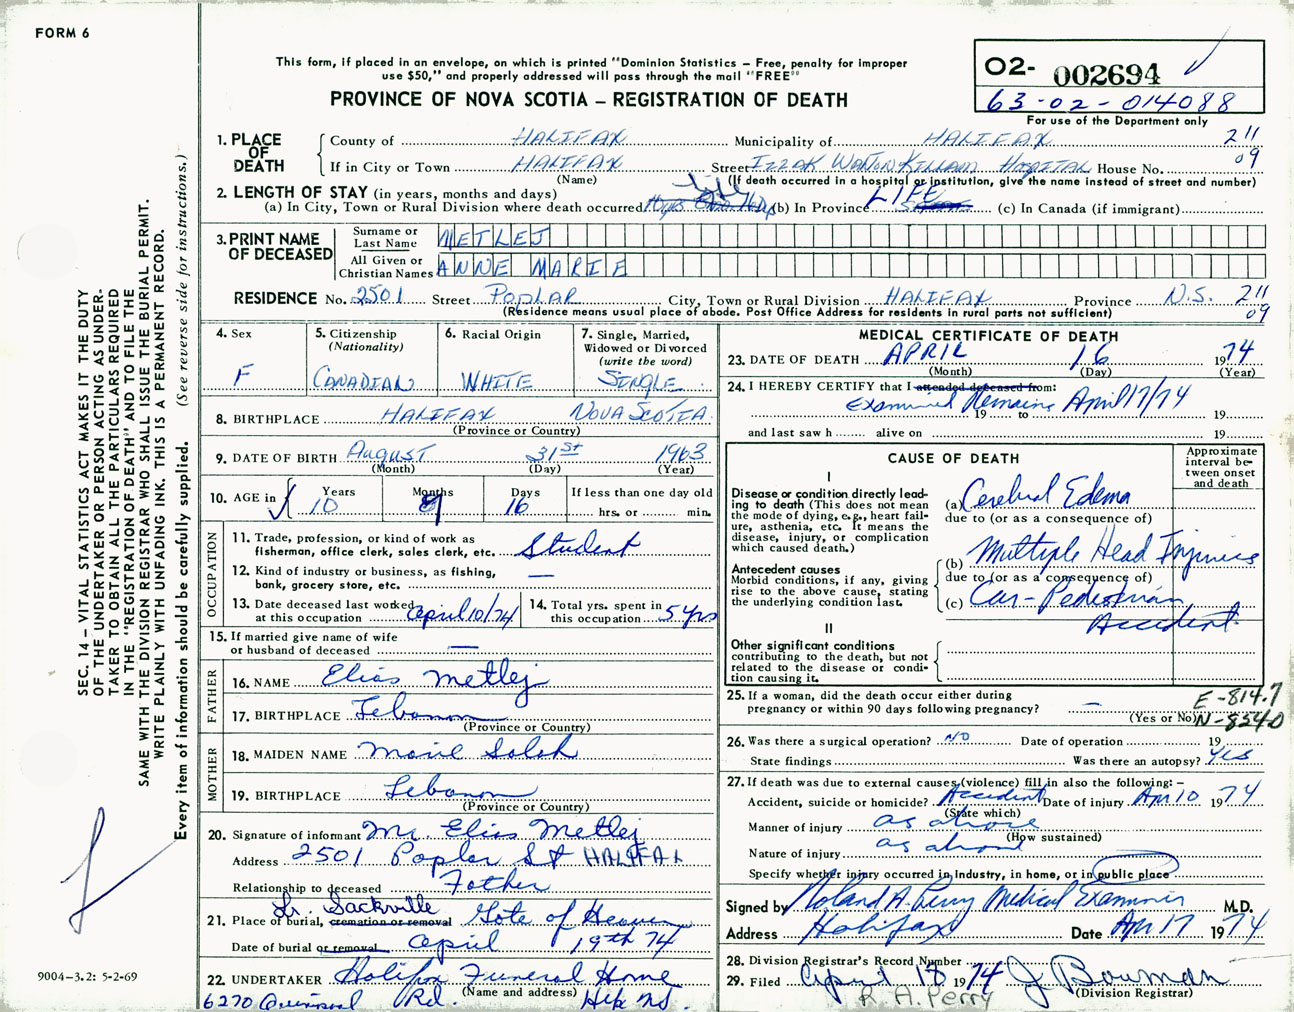 FORM 6
This form, if placed in an envelope, on which is printed "Dominion Statistics – Free, penalty for improper
use $50," and properly addressed will pass through the mail "FREE"
PROVINCE OF NOVA SCOTIA – REGISTRATION OF DEATH
O2- 002694
63-02-014088
For use of the Department only
1. PLACE OF DEATH
County of HALIFAX Municipality of HALIFAX 211
If in City or Town HALIFAX Street IZZAK WALTON KILLAM HOSPITAL House No. 09
(Name) (If death occurred in a hospital or institution, give the name instead of street and number)
2. LENGTH OF STAY (in years, months and days)
(a) In City, Town or Rural Division where death occurred life (b) In Province LIFE (c) In Canada (if immigrant)
3. PRINT NAME OF DECEASED
Surname or Last Name METLEJ
All Given or Christian Names ANNE MARIE
RESIDENCE No. 2501 Street POPLAR City, Town or Rural Division HALIFAX Province N.S. 211
(Residence means usual place of abode. Post Office Address for residents in rural parts not sufficient) 09
4. Sex
F
5. Citizenship
(Nationality)
CANADIAN
6. Racial Origin
WHITE
7. Single, Married,
Widowed or Divorced
(write the word)
SINGLE
8. BIRTHPLACE HALIFAX NOVA SCOTIA
(Province or Country)
9. DATE OF BIRTH AUGUST 31st 1963
(Month) (Day) (Year)
10. AGE in Years Months Days If less than one day old
10 16 hrs. or min.
OCCUPATION
11. Trade, profession, or kind of work as
fisherman, office clerk, sales clerk, etc. Student
12. Kind of industry or business, as fishing,
bank, grocery store, etc. —
13. Date deceased last worked
at this occupation April 10/74
14. Total yrs. spent in
this occupation 5 yrs
15. If married give name of wife
or husband of deceased —
FATHER
16. NAME Elias Metlej
17. BIRTHPLACE Lebanon
(Province or Country)
MOTHER
18. MAIDEN NAME Marie Saleh
19. BIRTHPLACE Lebanon
(Province or Country)
20. Signature of informant Mr. Elias Metlej
Address 2501 Poplar St HALIFAX
Relationship to deceased Father
Lr. Sackville
21. Place of burial, cremation or removal Gate of Heaven
Date of burial or removal April 19th 74
22. UNDERTAKER Halifax Funeral Home
(Name and address)
6270 Quinpool Rd. Hfx NS.
MEDICAL CERTIFICATE OF DEATH
23. DATE OF DEATH APRIL 16 1974
(Month) (Day) (Year)
24. I HEREBY CERTIFY that I attended deceased from:
Examined Remains April 17/74
19 to 19
and last saw h alive on 19
CAUSE OF DEATH
Approximate
interval be-
tween onset
and death
I
Disease or condition directly lead-
ing to death (This does not mean
the mode of dying, e.g., heart fail-
ure, asthenia, etc. It means the
disease, injury, or complication
which caused death.)
(a) Cerebral Edema
due to (or as a consequence of)
Antecedent causes
Morbid conditions, if any, giving
rise to the above cause, stating
the underlying condition last.
(b) Multiple Head Injuries
due to (or as a consequence of)
(c) Car-Pedestrian
Accident
II
Other significant conditions
contributing to the death, but not
related to the disease or condi-
tion causing it.
25. If a woman, did the death occur either during
pregnancy or within 90 days following pregnancy? —
(Yes or No)
E-814.7
N-8540
26. Was there a surgical operation? NO Date of operation 19
State findings Was there an autopsy? Yes
27. If death was due to external causes (violence) fill in also the following:–
Accident, suicide or homicide? Accident Date of injury Apr 10 1974
(State which)
Manner of injury as above
(How sustained)
Nature of injury as above
Specify whether injury occurred in industry, in home, or in public place
Signed by Roland A. Perry Medical Examiner M.D.
Address Halifax Date Apr 17 1974
28. Division Registrar's Record Number
29. Filed April 18 1974 J Bowman
(Division Registrar)
R. A. Perry
SEC. 14 – VITAL STATISTICS ACT MAKES IT THE DUTY
OF THE UNDERTAKER OR PERSON ACTING AS UNDER-
TAKER TO OBTAIN ALL THE PARTICULARS REQUIRED
IN THE "REGISTRATION OF DEATH" AND TO FILE THE
SAME WITH THE DIVISION REGISTRAR WHO SHALL ISSUE THE BURIAL PERMIT.
WRITE PLAINLY WITH UNFADING INK. THIS IS A PERMANENT RECORD.
Every item of information should be carefully supplied. (See reverse side for instructions.)
9004–3.2: 5-2-69